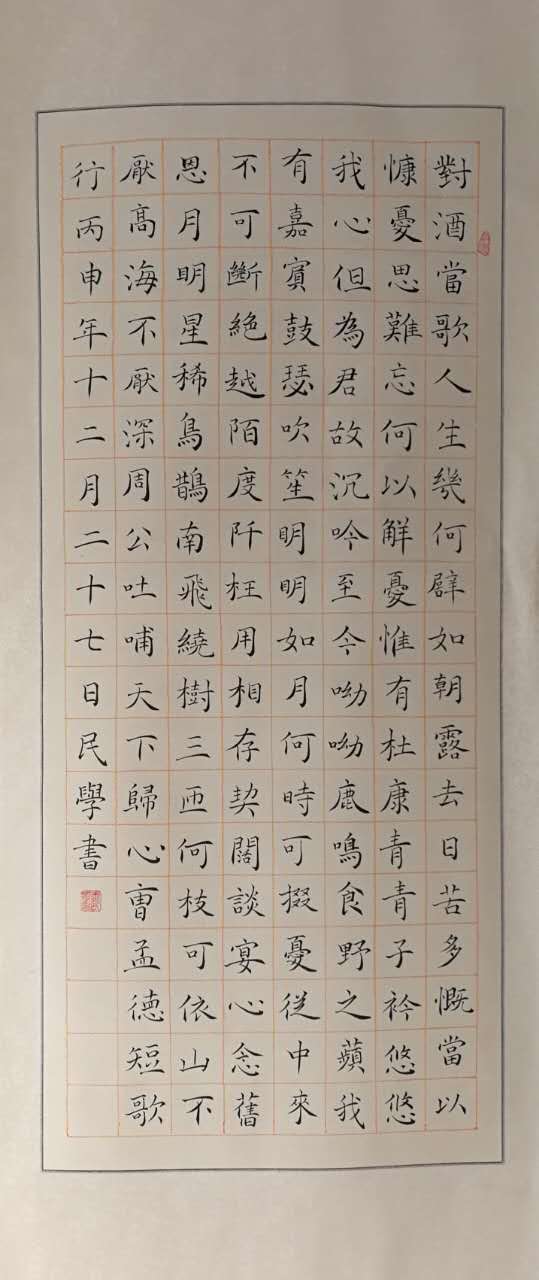 對酒當歌人生幾何譬如朝露去日苦多慨當以
慷憂思難忘何以解憂惟有杜康青青子衿悠悠
我心但為君故沉吟至今呦呦鹿鳴食野之蘋我
有嘉賓鼓瑟吹笙明明如月何時可掇憂從中來
不可斷絕越陌度阡枉用相存契闊談宴心念舊
恩月明星稀烏鵲南飛繞樹三匝何枝可依山不
厭高海不厭深周公吐哺天下歸心曹孟德短歌
行丙申年十二月二十七日民學書